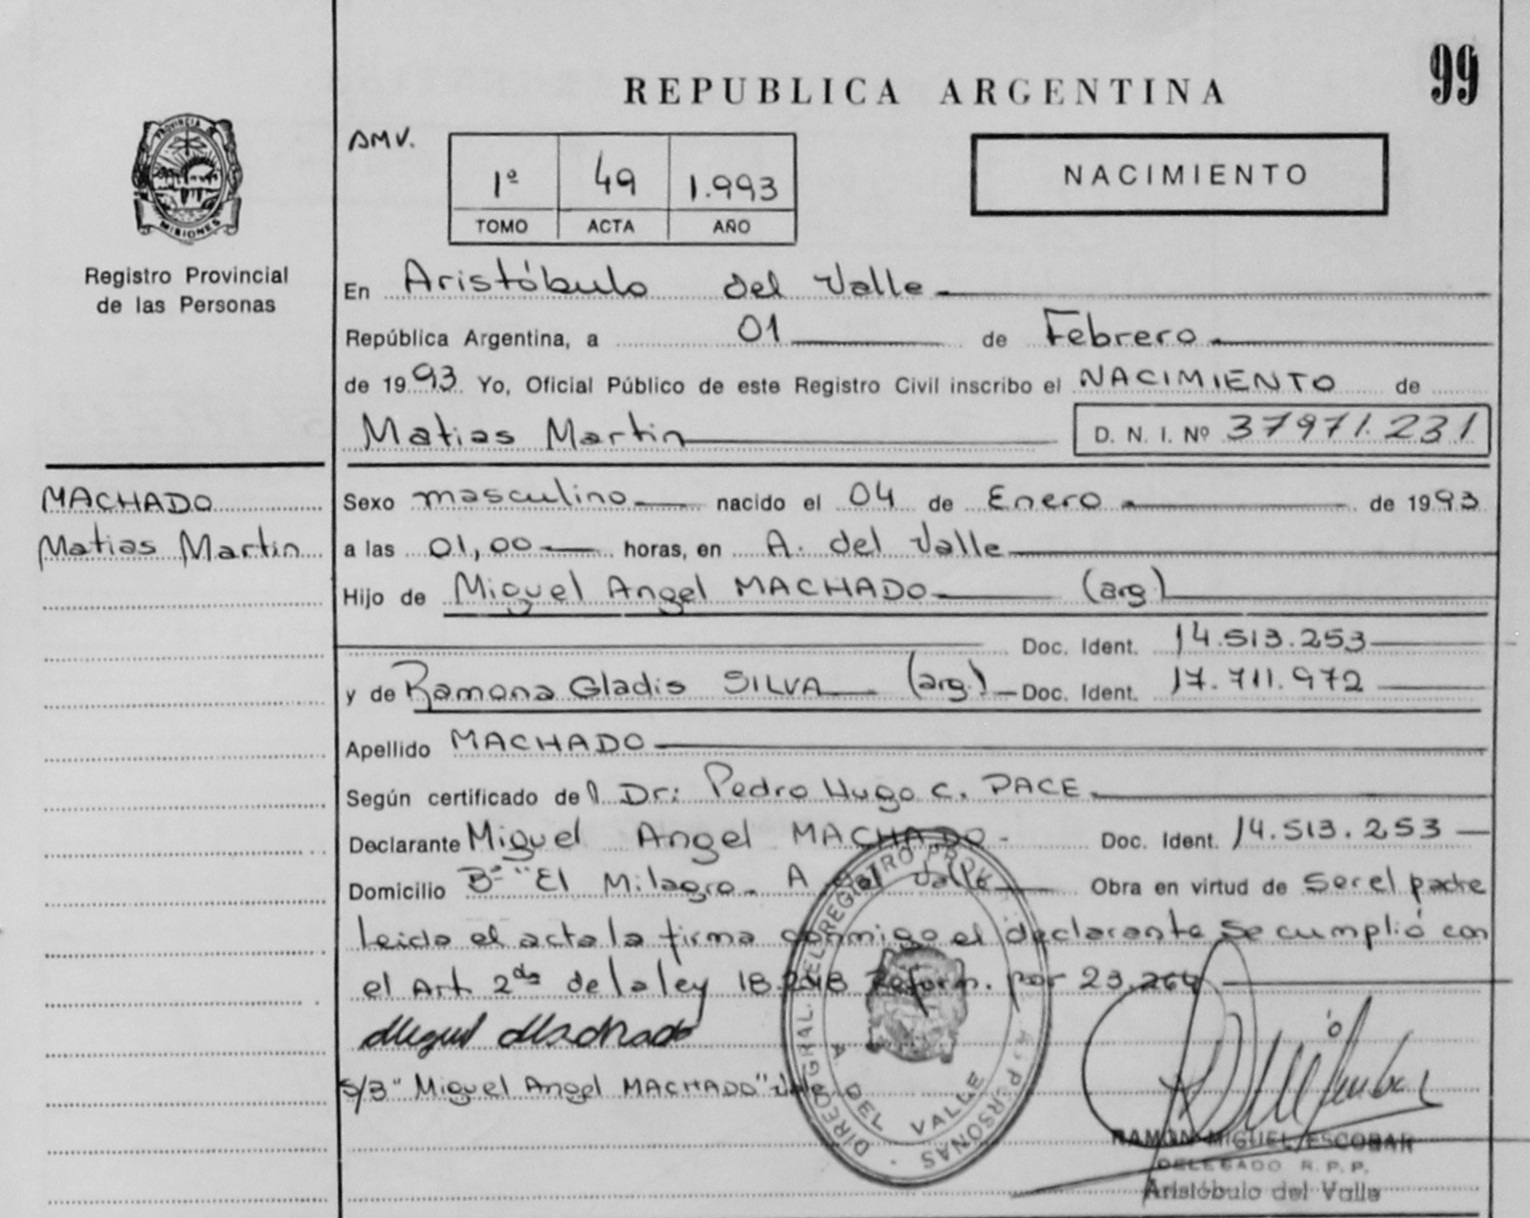 99
REPUBLICA ARGENTINA
AMV.
1º 49 1.993
TOMO ACTA AÑO
NACIMIENTO
PROVINCIA DE
MISIONES
Registro Provincial
de las Personas
En Aristóbulo del Valle
República Argentina, a 01 de Febrero
de 1993 Yo, Oficial Público de este Registro Civil inscribo el NACIMIENTO de
Matias Martin D. N. I. Nº 37971.231
MACHADO
Matias Martin
Sexo masculino nacido el 04 de Enero de 1993
a las 01,00 horas, en A. del Valle
Hijo de Miguel Angel MACHADO (arg)
Doc. Ident. 14.513.253
y de Ramona Gladis SILVA (arg) Doc. Ident. 17.711.972
Apellido MACHADO
Según certificado del Dr: Pedro Hugo C. PACE
Declarante Miguel Angel MACHADO - Doc. Ident. 14.513.253
Domicilio Bº "El Milagro. A del Valle Obra en virtud de ser el padre
leida el acta la firma conmigo el declarante se cumplió con
el Art. 2do de la ley 18.248 Reform. por 23.264
Miguel Machado
S/B "Miguel Angel MACHADO" Vale
DIREC. GRAL. DEL REGISTRO PROV. PERSONAS
A DEL VALLE
RAMON MIGUEL ESCOBAR
DELEGADO R. P. P.
Aristóbulo del Valle